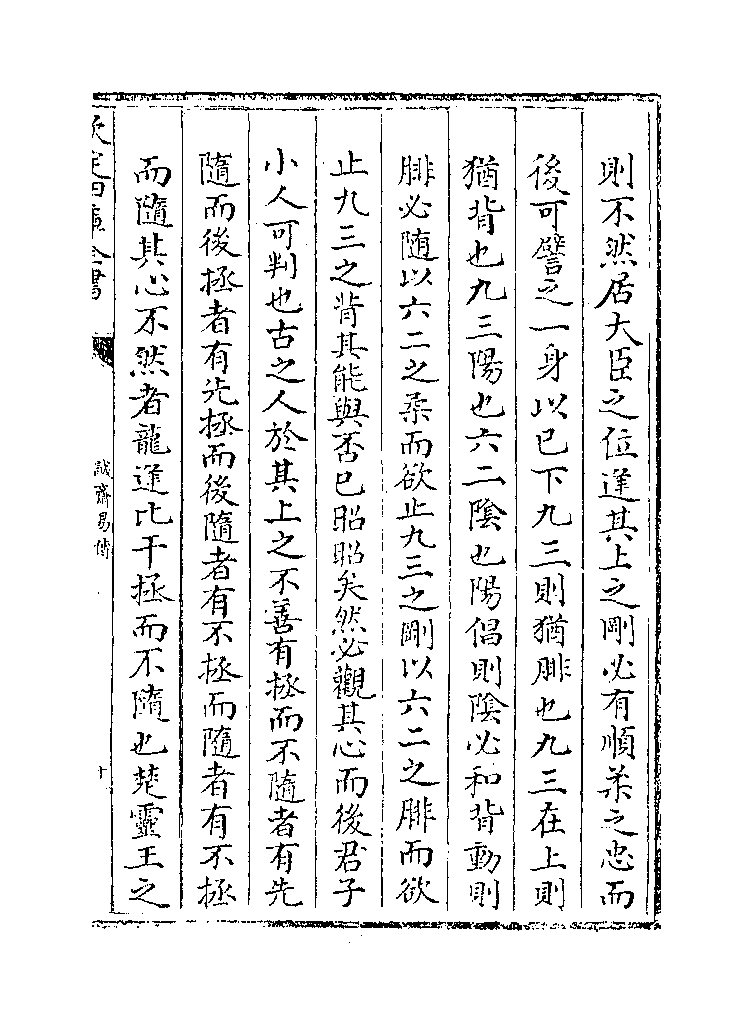 則不然居大臣之位逢其上之剛必有順柔之忠而
後可譬之一身以已下九三則猶腓也九三在上則
猶背也九三陽也六二陰也陽倡則陰必和背動則
腓必随以六二之柔而欲止九三之剛以六二之腓而欲
止九三之背其能與否已昭昭矣然必觀其心而後君子
小人可判也古之人於其上之不善有拯而不隨者有先
隨而後拯者有先拯而後隨者有不拯而隨者有不拯
而隨其心不然者龍逄比干拯而不隨也楚靈王之
欽定四庫全書
誠齋易傳
十